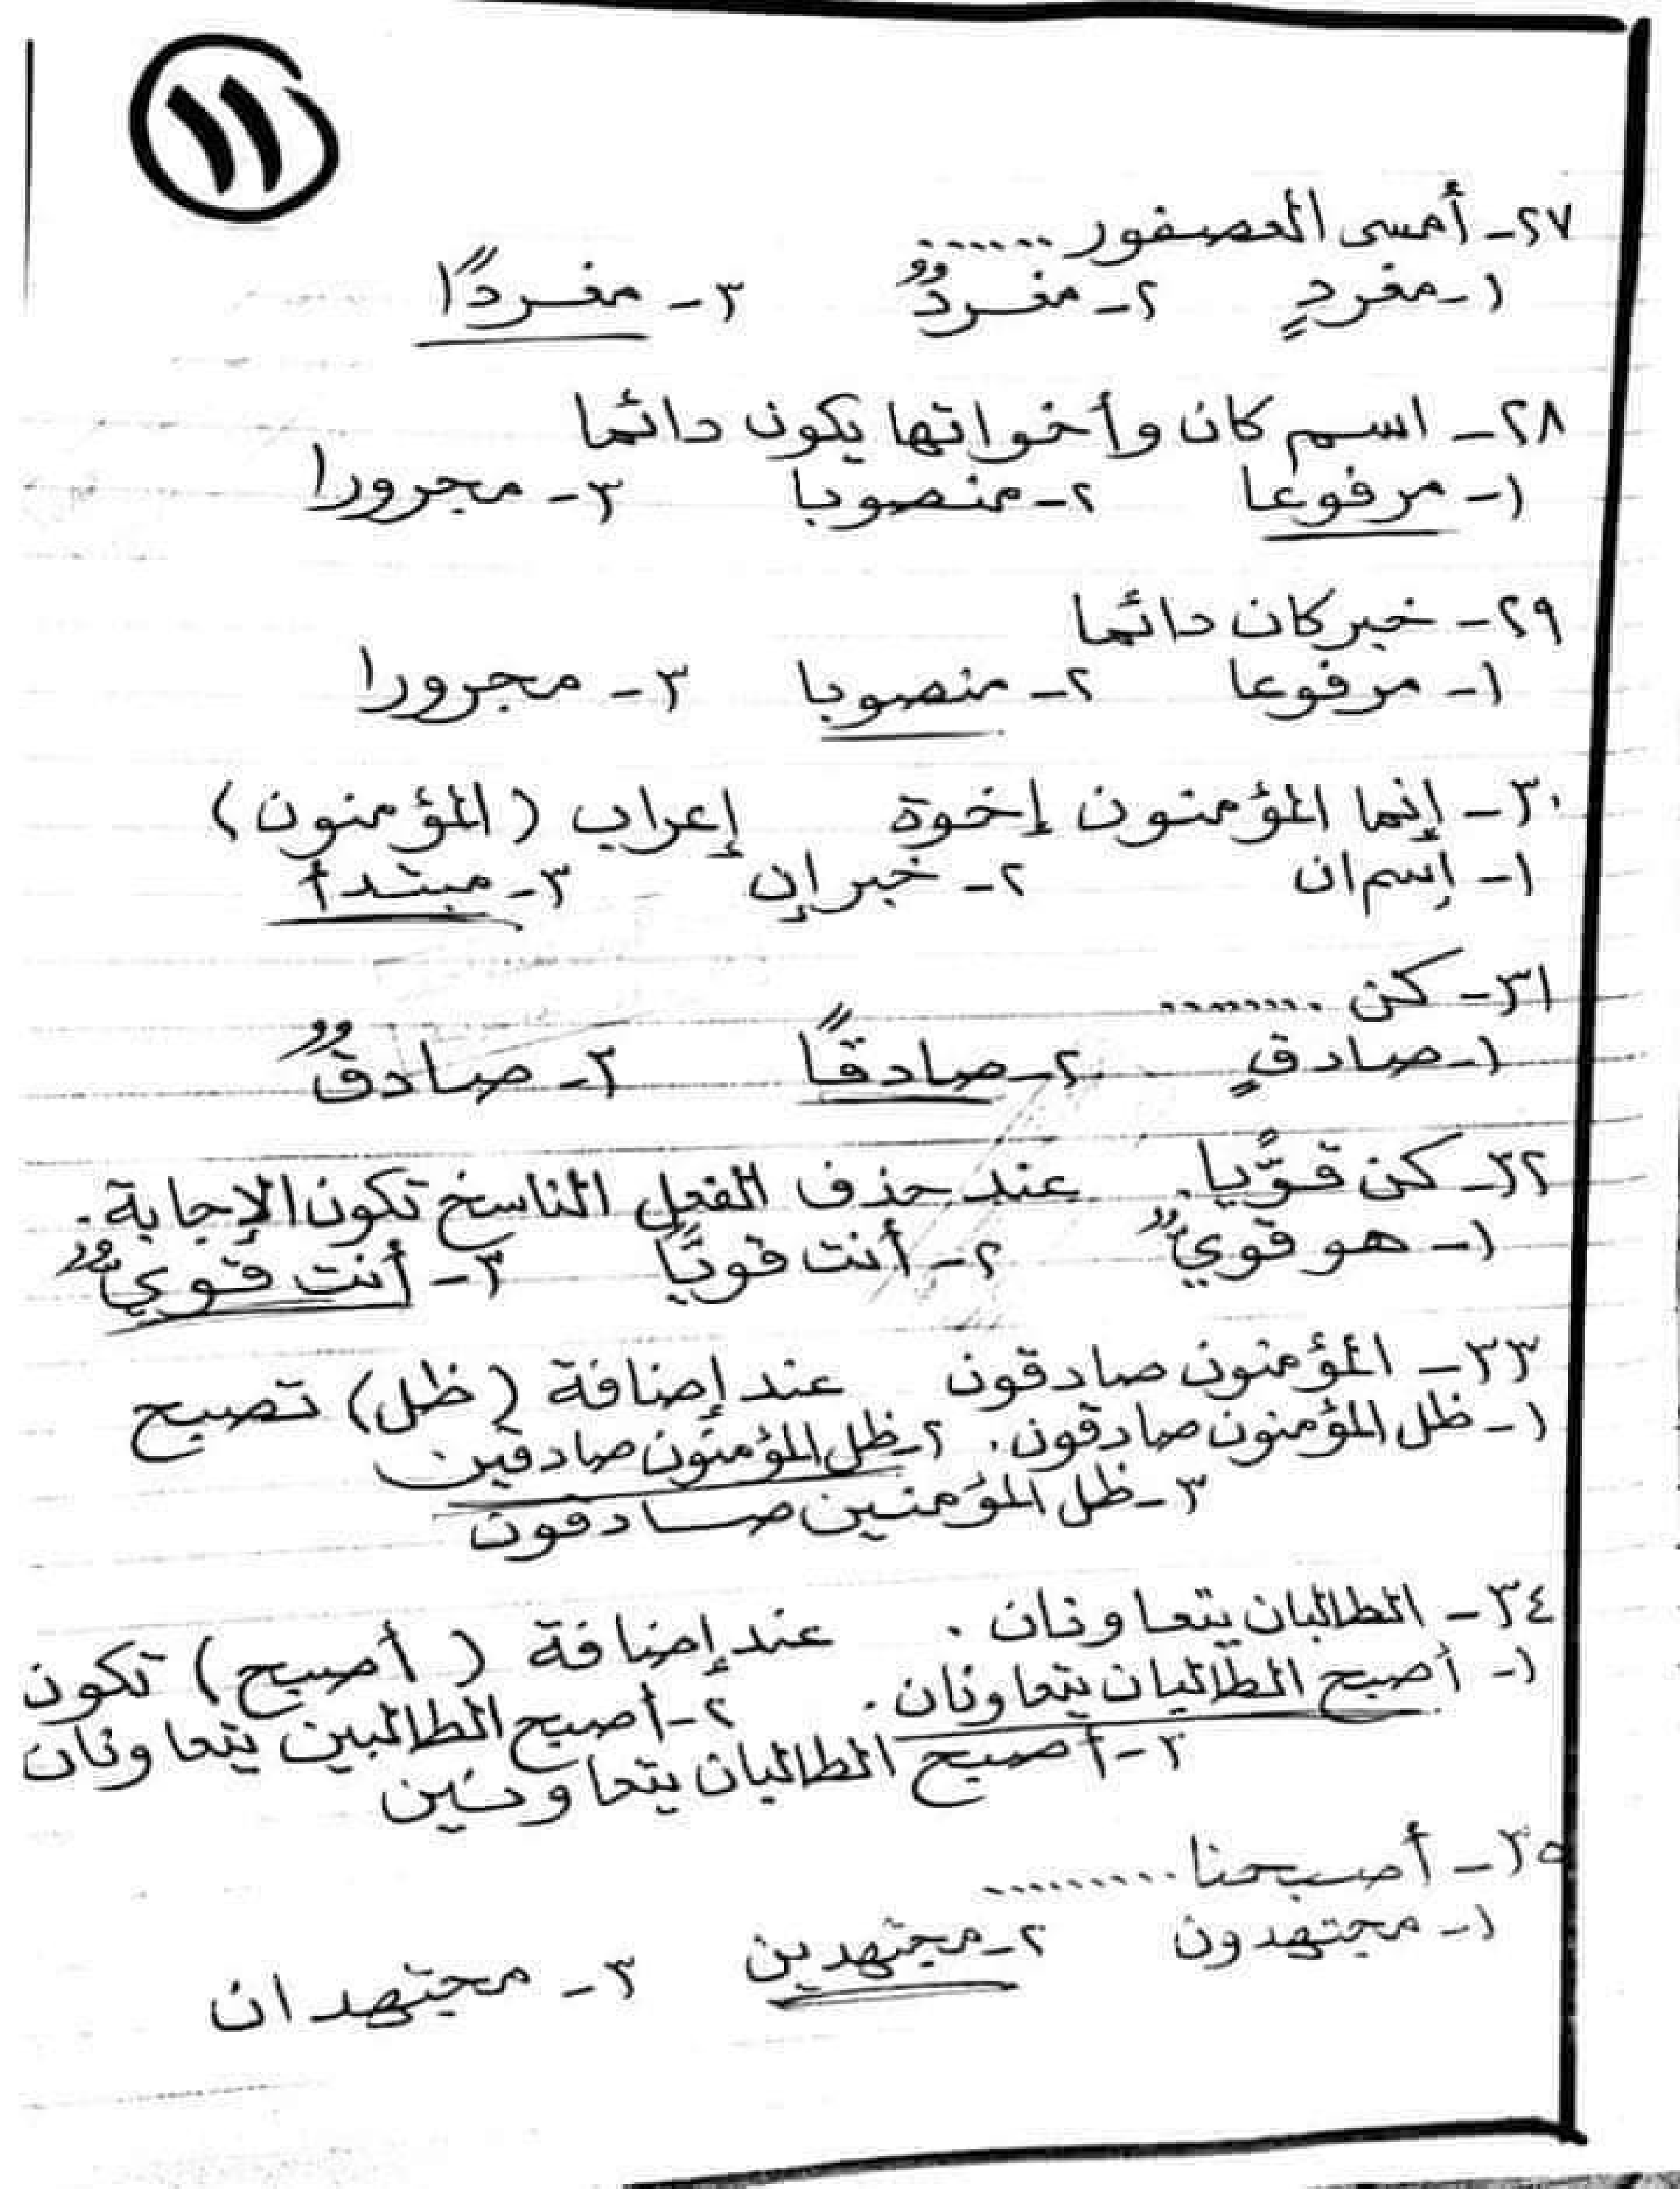 ١١
٢٧- أمسى العصفور ......
١- مغردٍ ٢- مغردٌ ٣- مغردًا
٢٨- اسم كان وأخواتها يكون دائما
١- مرفوعا ٢- منصوبا ٣- مجرورا
٢٩- خبر كان دائما
١- مرفوعا ٢- منصوبا ٣- مجرورا
٣٠- إنما المؤمنون إخوة إعراب (المؤمنون)
١- إسم ان ٢- خبر إن ٣- مبتدأ
٣١- كن .........
١- صادقٍ ٢- صادقًا ٣- صادقٌ
٣٢- كن قويًّا. عند حذف الفعل الناسخ تكون الإجابة.
١- هو قويٌ ٢- أنت قويًا ٣- أنت قويٌ
٣٣- المؤمنون صادقون عند إضافة (ظل) تصبح
١- ظل المؤمنون صادقون. ٢- ظل المؤمنون صادقين
٣- ظل المؤمنين صادقون
٣٤- الطالبان يتعاونان. عند إضافة (أصبح) تكون
١- أصبح الطالبان يتعاونان. ٢- أصبح الطالبين يتعاونان
٣- أصبح الطالبان يتعاونين
٣٥- أصبحنا .........
١- مجتهدون ٢- مجتهدين ٣- مجتهدان